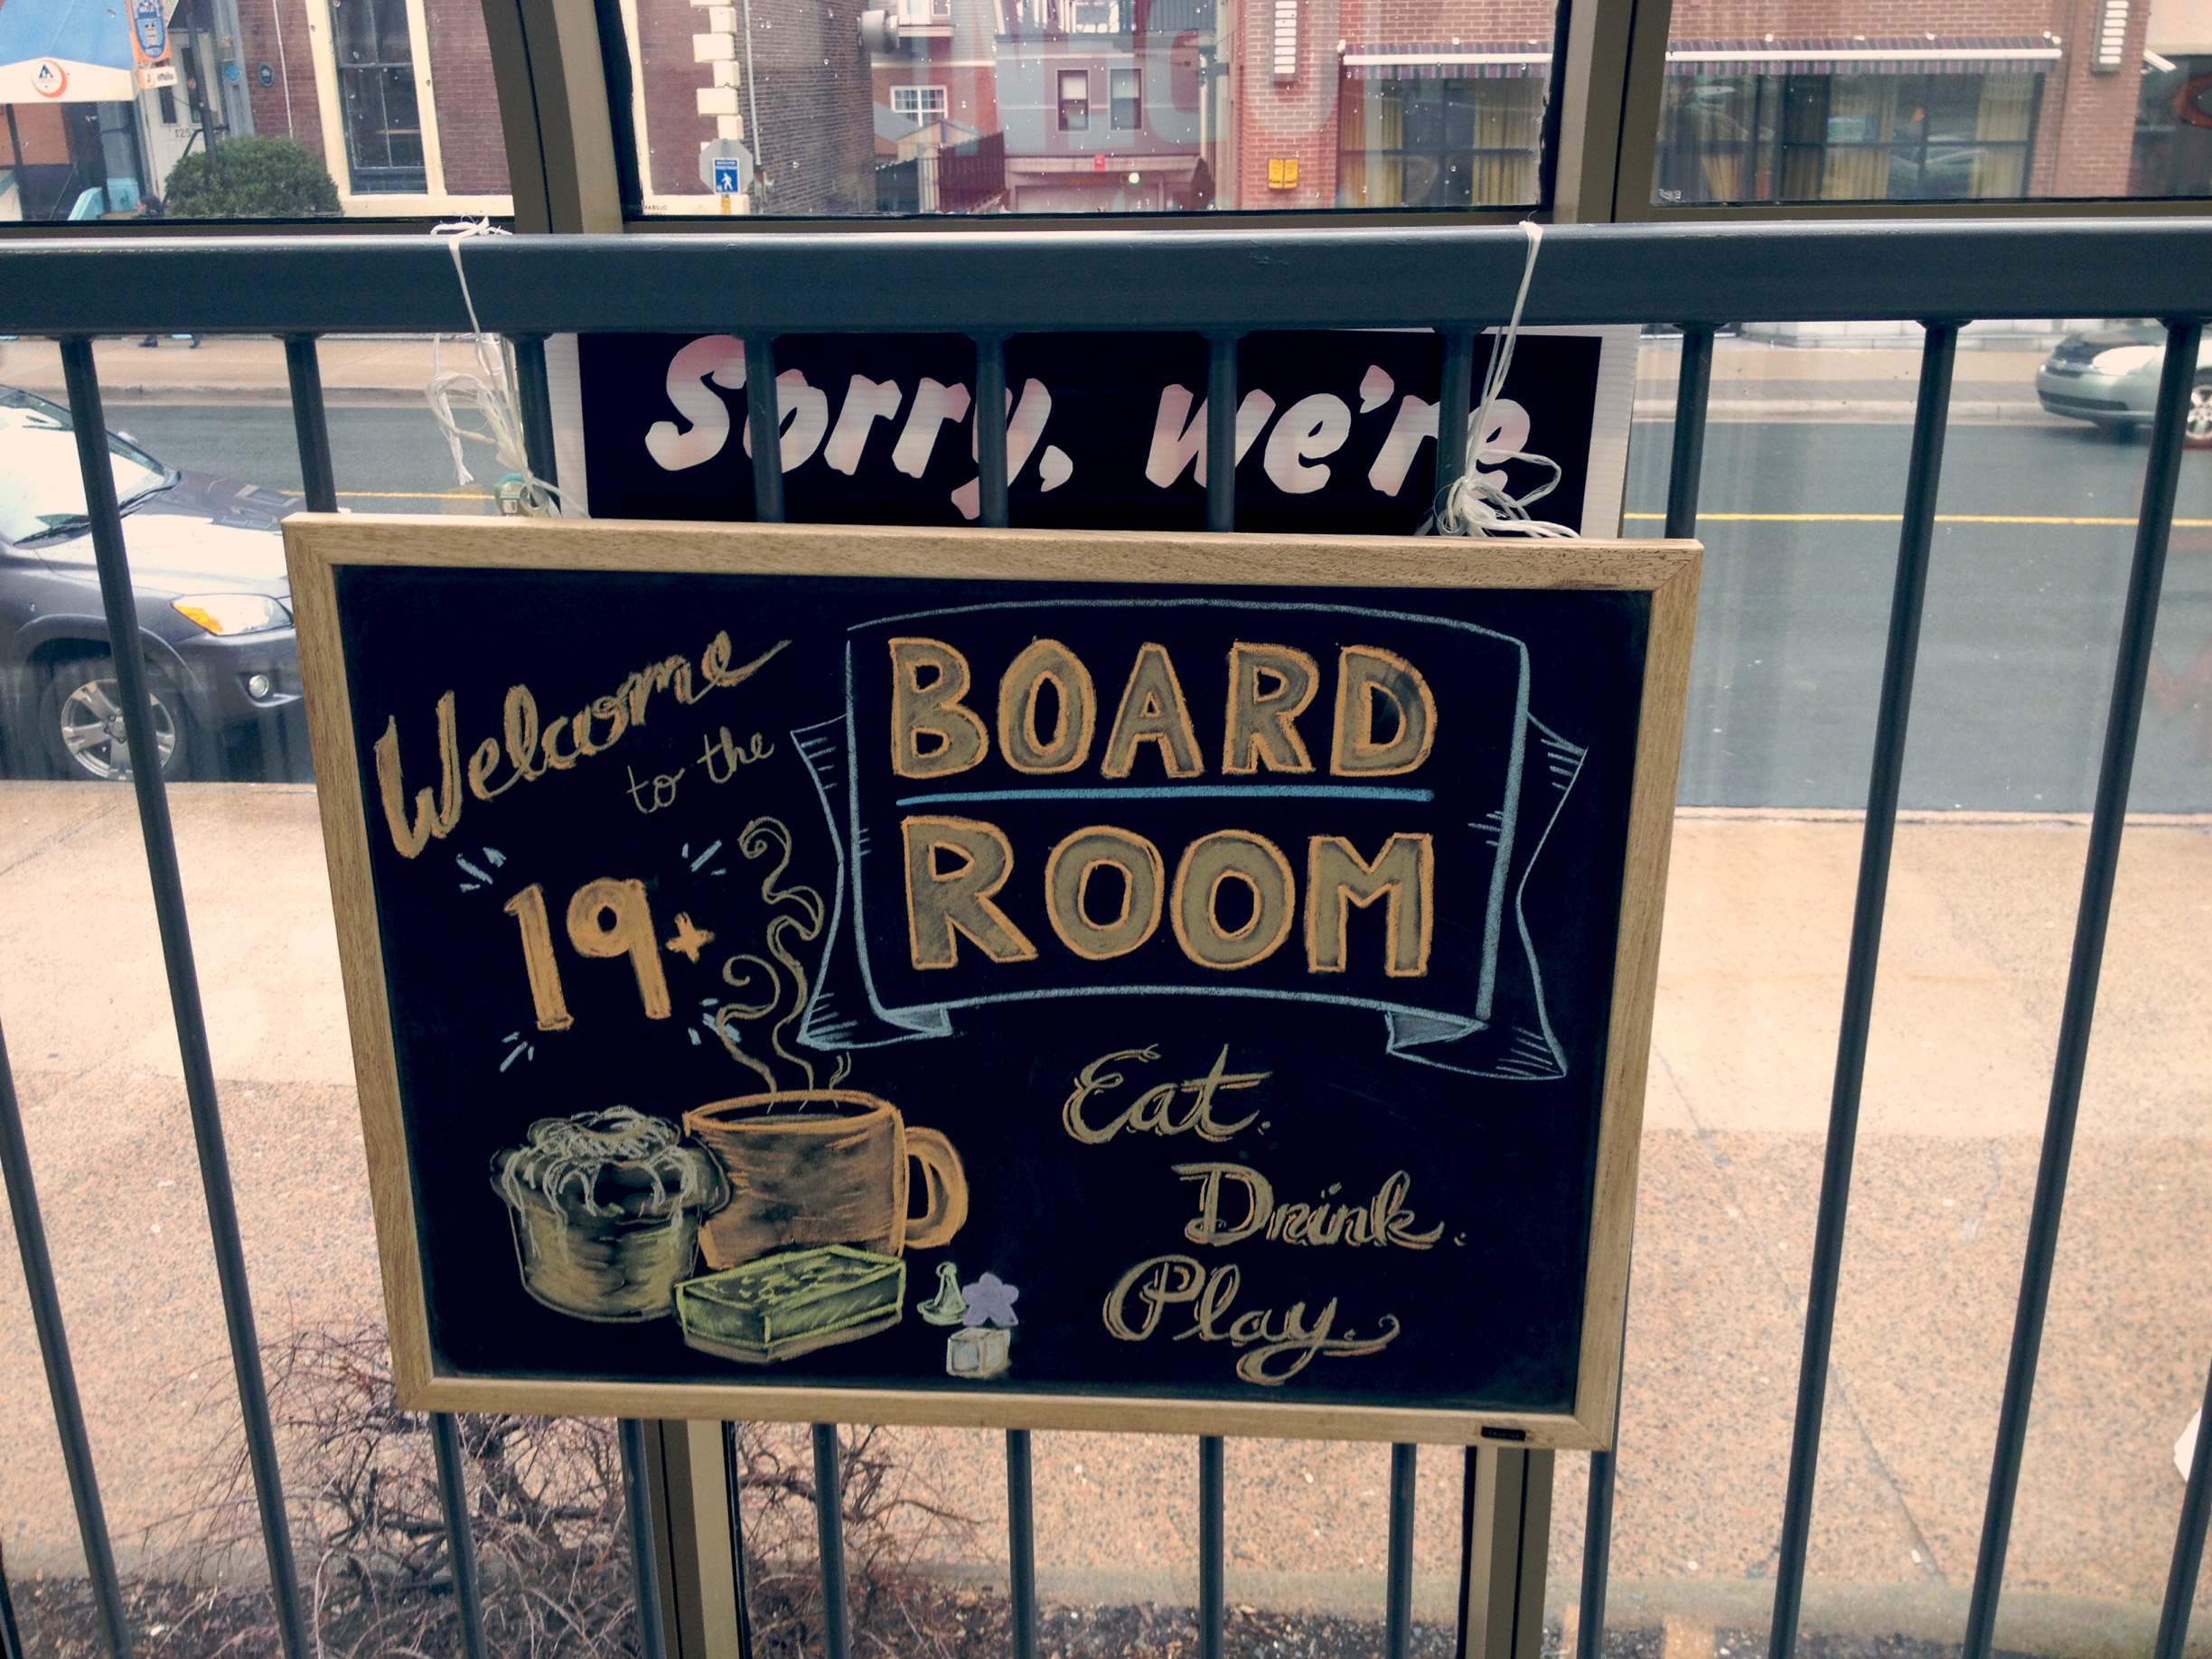 Sorry, we're
Welcome
to the
BOARD
ROOM
19+
Eat.
Drink.
Play.